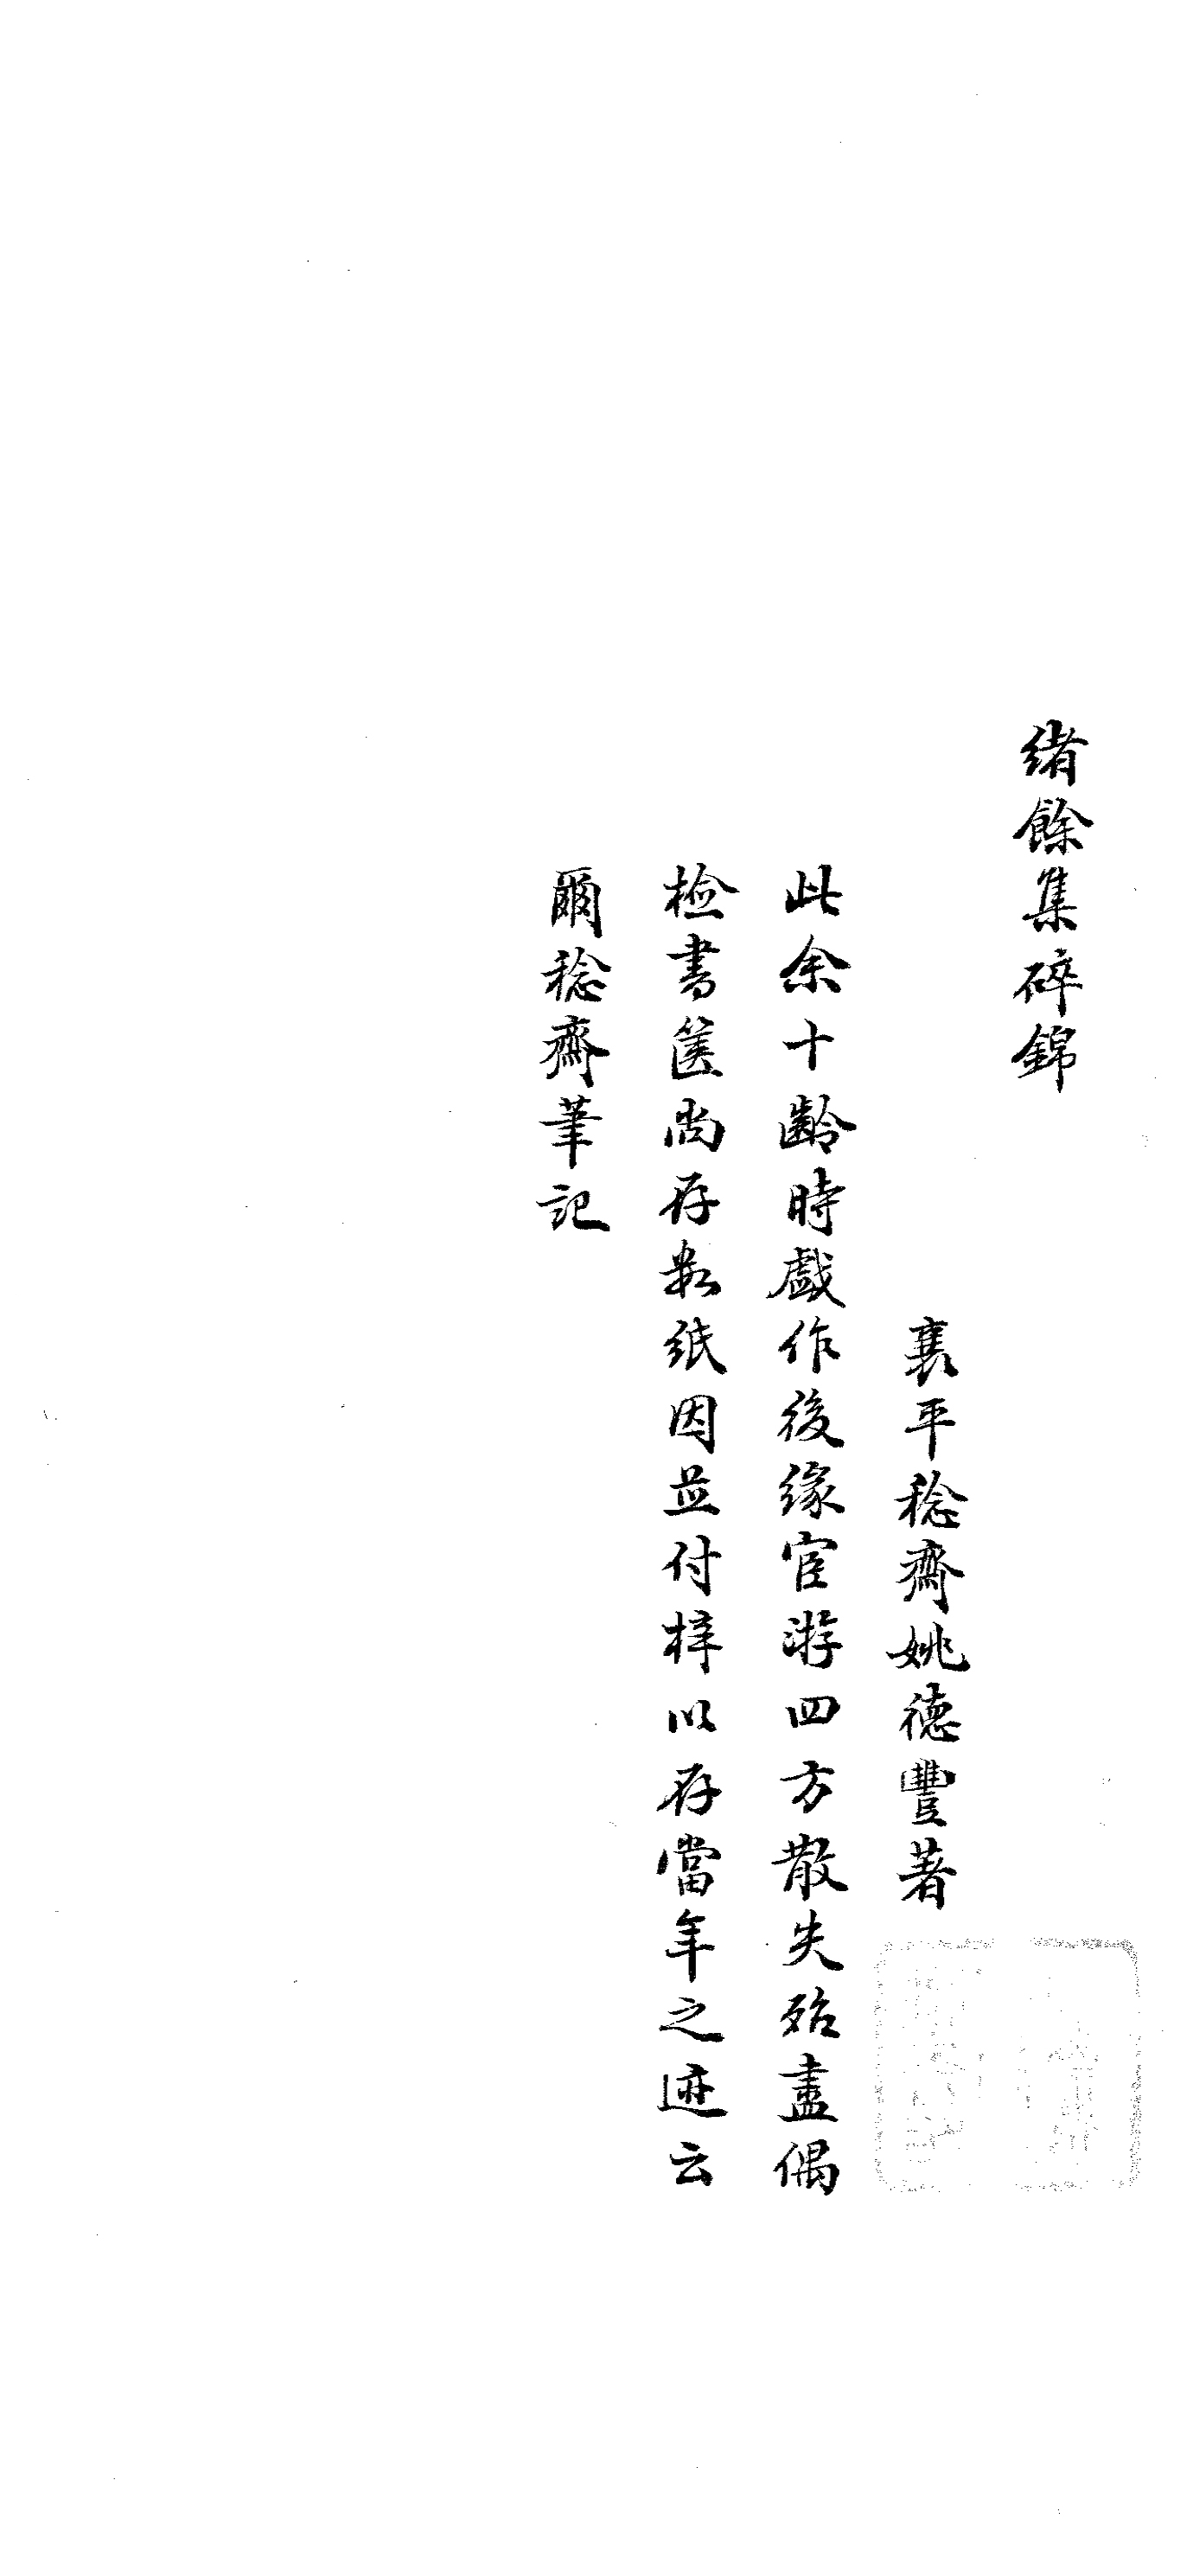 緒餘集碎錦
襄平稔齋姚德豐著
此余十齡時戲作後緣宦游四方散失殆盡偶
檢書篋尚存數紙因並付梓以存當年之迹云
爾稔齋筆記